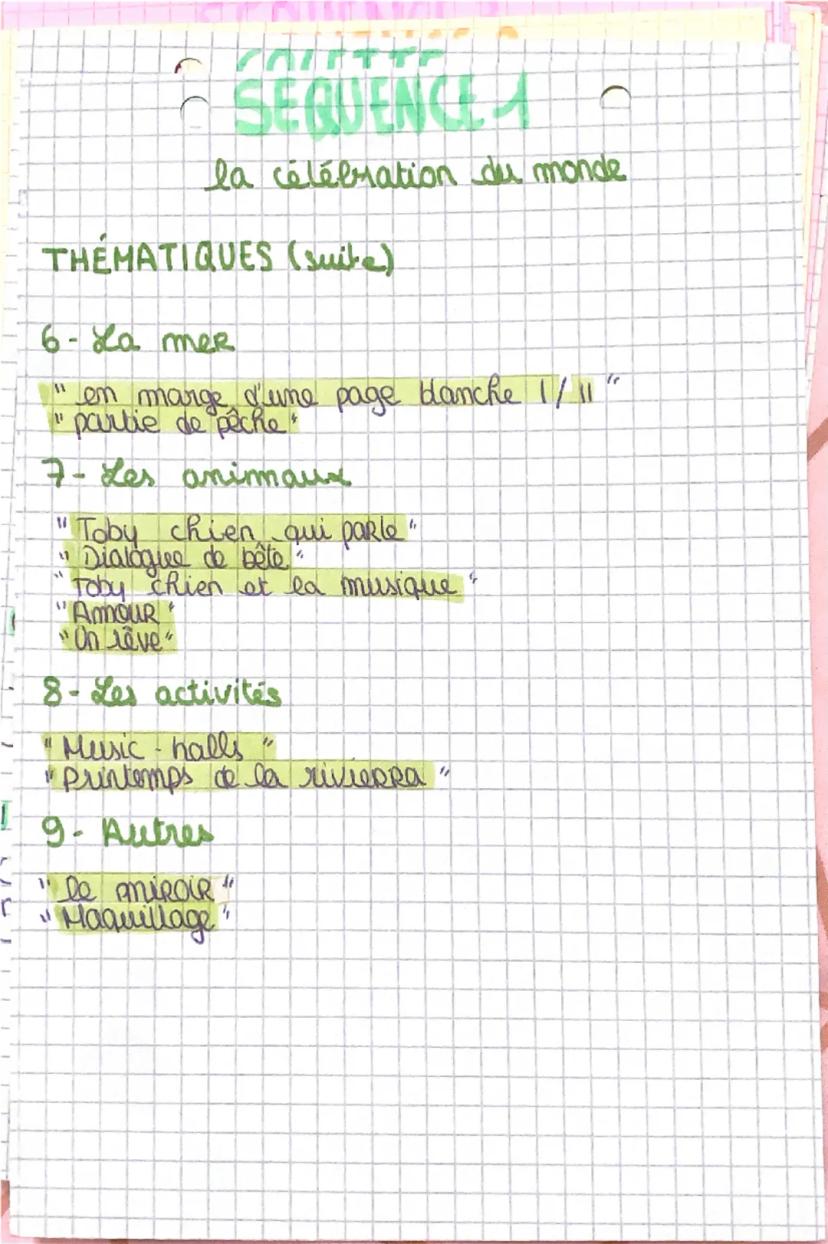 SÉQUENCE 1
la célébration du monde
THÉMATIQUES (suite)
6- La mer
" en marge d'une page blanche I/ II "
" partie de pêche "
7- Les animaux
" Toby chien qui parle "
" Dialogue de bête "
" Toby chien et la musique "
" Amour "
" On rêve "
8- Les activités
" Music-halls "
" Printemps de la rivierra "
9- Autres
" le miroir "
" Maquillage "